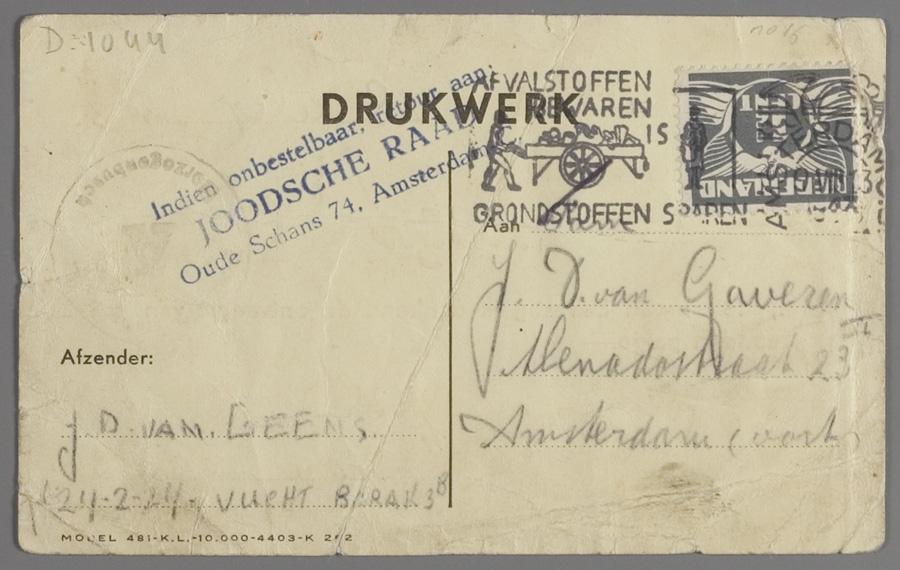 D-1044
DRUKWERK
AFVALSTOFFEN
BEWAREN
IS
GRONDSTOFFEN SPAREN
Indien onbestelbaar, retour aan:
JOODSCHE RAAD
Oude Schans 74, Amsterdam-C.
NEDERLAND
Aan
J. D. van Gaveren
Menadostraat 23
Amsterdam (oost)
Afzender:
J. D. VAN. GEENS
24-2-24. VUCHT BARAK 3B
MODEL 481-K.L.-10.000-4403-K 2